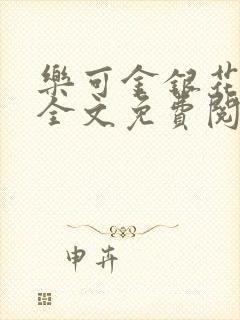 樂可金銀花
全文免費閱
申卉